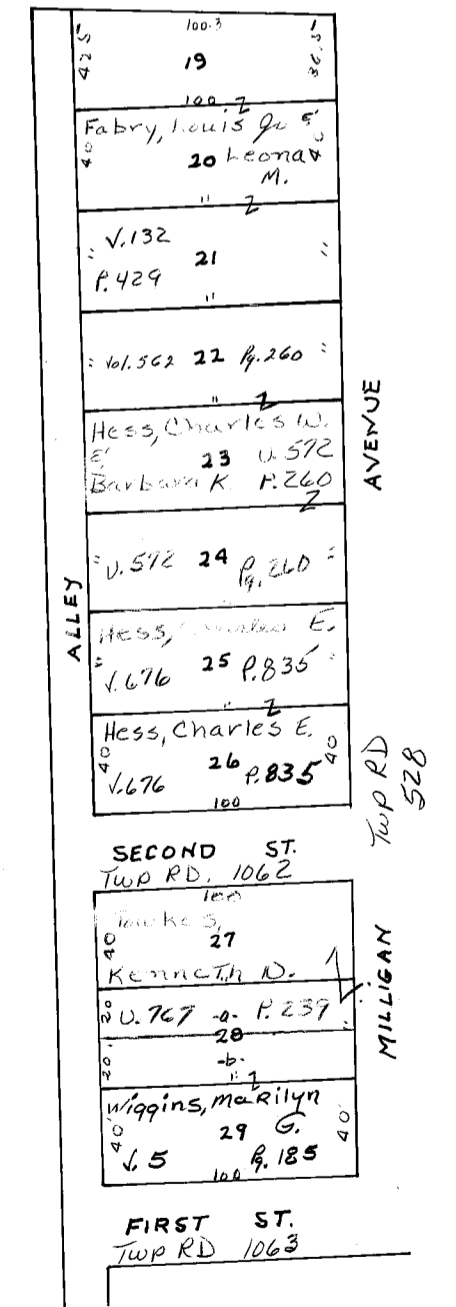 100.3
42.5' 19 36.5'
100. Z
Fabry, Louis Jr &
40 20 Leona 40'
M.
" Z
" V.132 21 "
P.429
"
" Vol.562 22 Pg.260 "
" Z
Hess, Charles W.
& 23 V.572
Barbara K. P.260
Z
" V.572 24 Pg.260 "
Hess, Charles E.
" V.676 25 P.835 "
" Z
Hess, Charles E.
40 26 40
V.676 P.835
100
ALLEY
AVENUE
TWP RD
528
SECOND ST.
TWP RD. 1062
100
40 27
Kenneth D.
20 V.767 -a- P.239 "
28
20' -b-
" Z
Wiggins, Marilyn
40' 29 G. 40'
V.5 Pg.185
100
MILLIGAN
FIRST ST.
TWP RD 1063